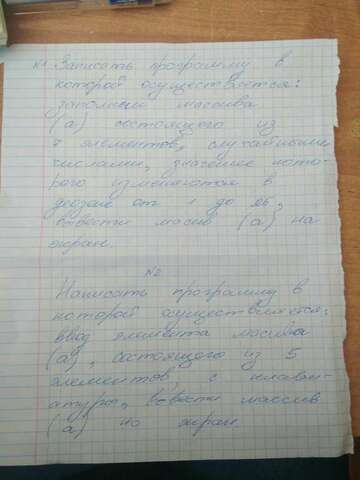 №1 Записать программу в
которой осуществляется:
заполнение массива
(а) состоящего из
7 элементов, случайными
числами, значение кото-
рого изменяются в
диапазоне от 1 до 26,
вывести масив (а) на
экран.
№2
Написать программу в
которой осуществляется:
ввод элемента масива
(а), состоящего из 5
элементов, с клавиа-
туры, вывести массив
(а) на экран